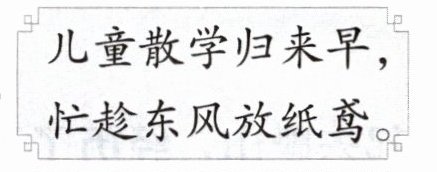 儿童散学归来早，
忙趁东风放纸鸢。